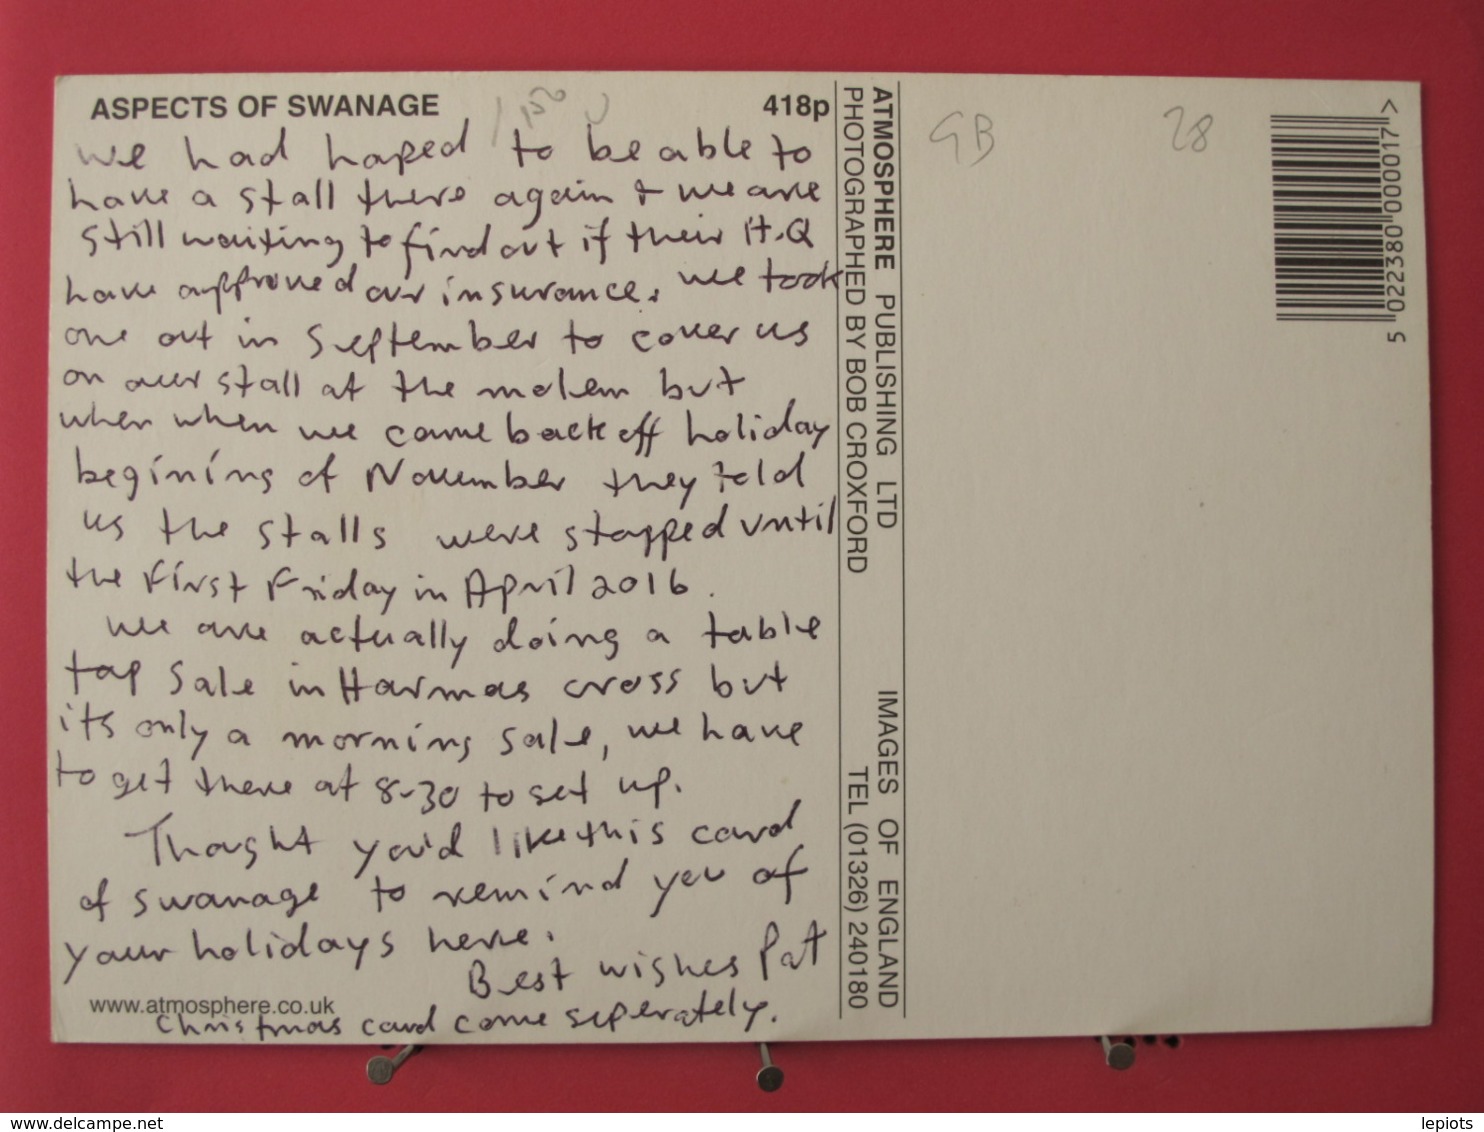 ASPECTS OF SWANAGE
418p
we had haped to be able to
have a stall there again & we are
still waiting to find out if their H.Q
have approved our insurance. we took
one out in september to cover us
on our stall at the molem but
when when we came back off holiday
begining of November they told
us the stalls were stopped until
the First Friday in April 2016.
we are actually doing a table
top sale in Harmas cross but
its only a morning sale, we have
to get there at 8-30 to set up.
Thought you'd like this card
of swanage to remind you of
your holidays here.
Best wishes Pat
www.atmosphere.co.uk
Christmas card come seperately.
ATMOSPHERE PUBLISHING LTD
PHOTOGRAPHED BY BOB CROXFORD
IMAGES OF ENGLAND
TEL (01326) 240180
GB
28
5 022380 000017 >
delcampe.net
lepiots